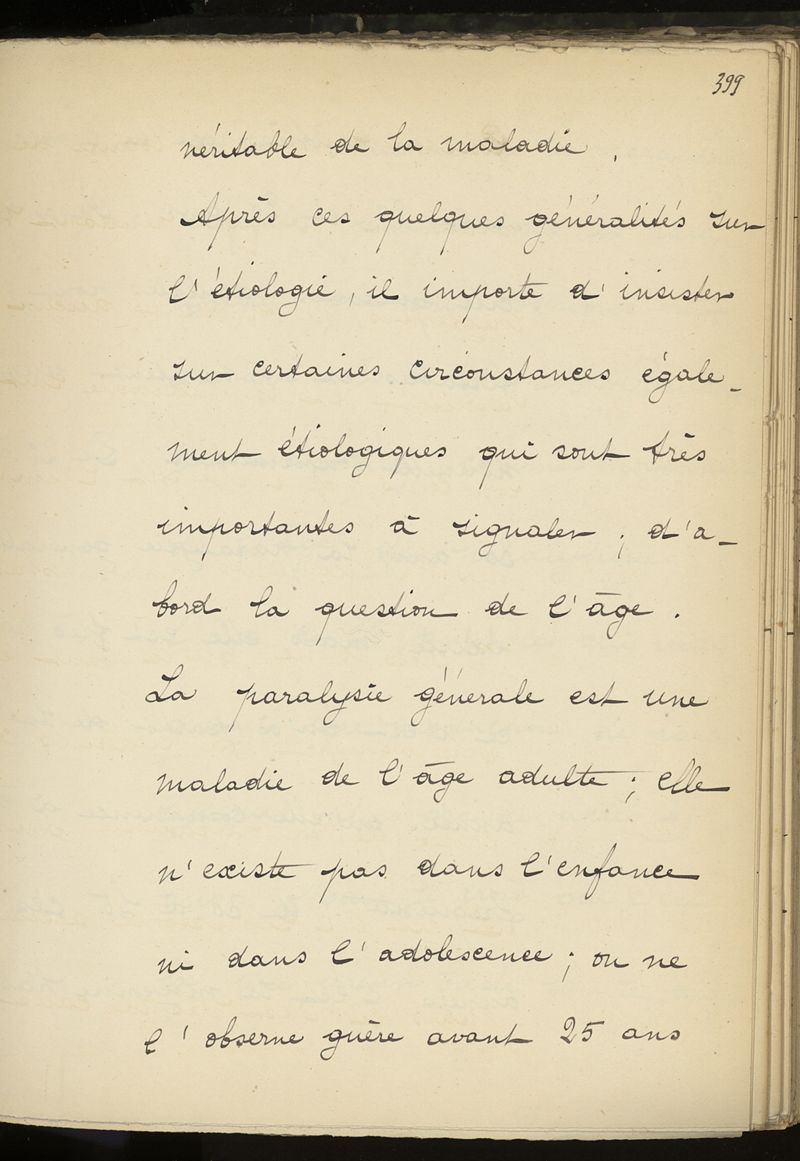 399
véritable de la maladie.
Après ces quelques généralités sur
l'étiologie, il importe d'insister
sur certaines circonstances égale-
ment étiologiques qui sont très
importantes à signaler ; d'a-
bord la question de l'âge.
La paralysie générale est une
maladie de l'âge adulte ; elle
n'existe pas dans l'enfance
ni dans l'adolescence ; on ne
l'observe guère avant 25 ans